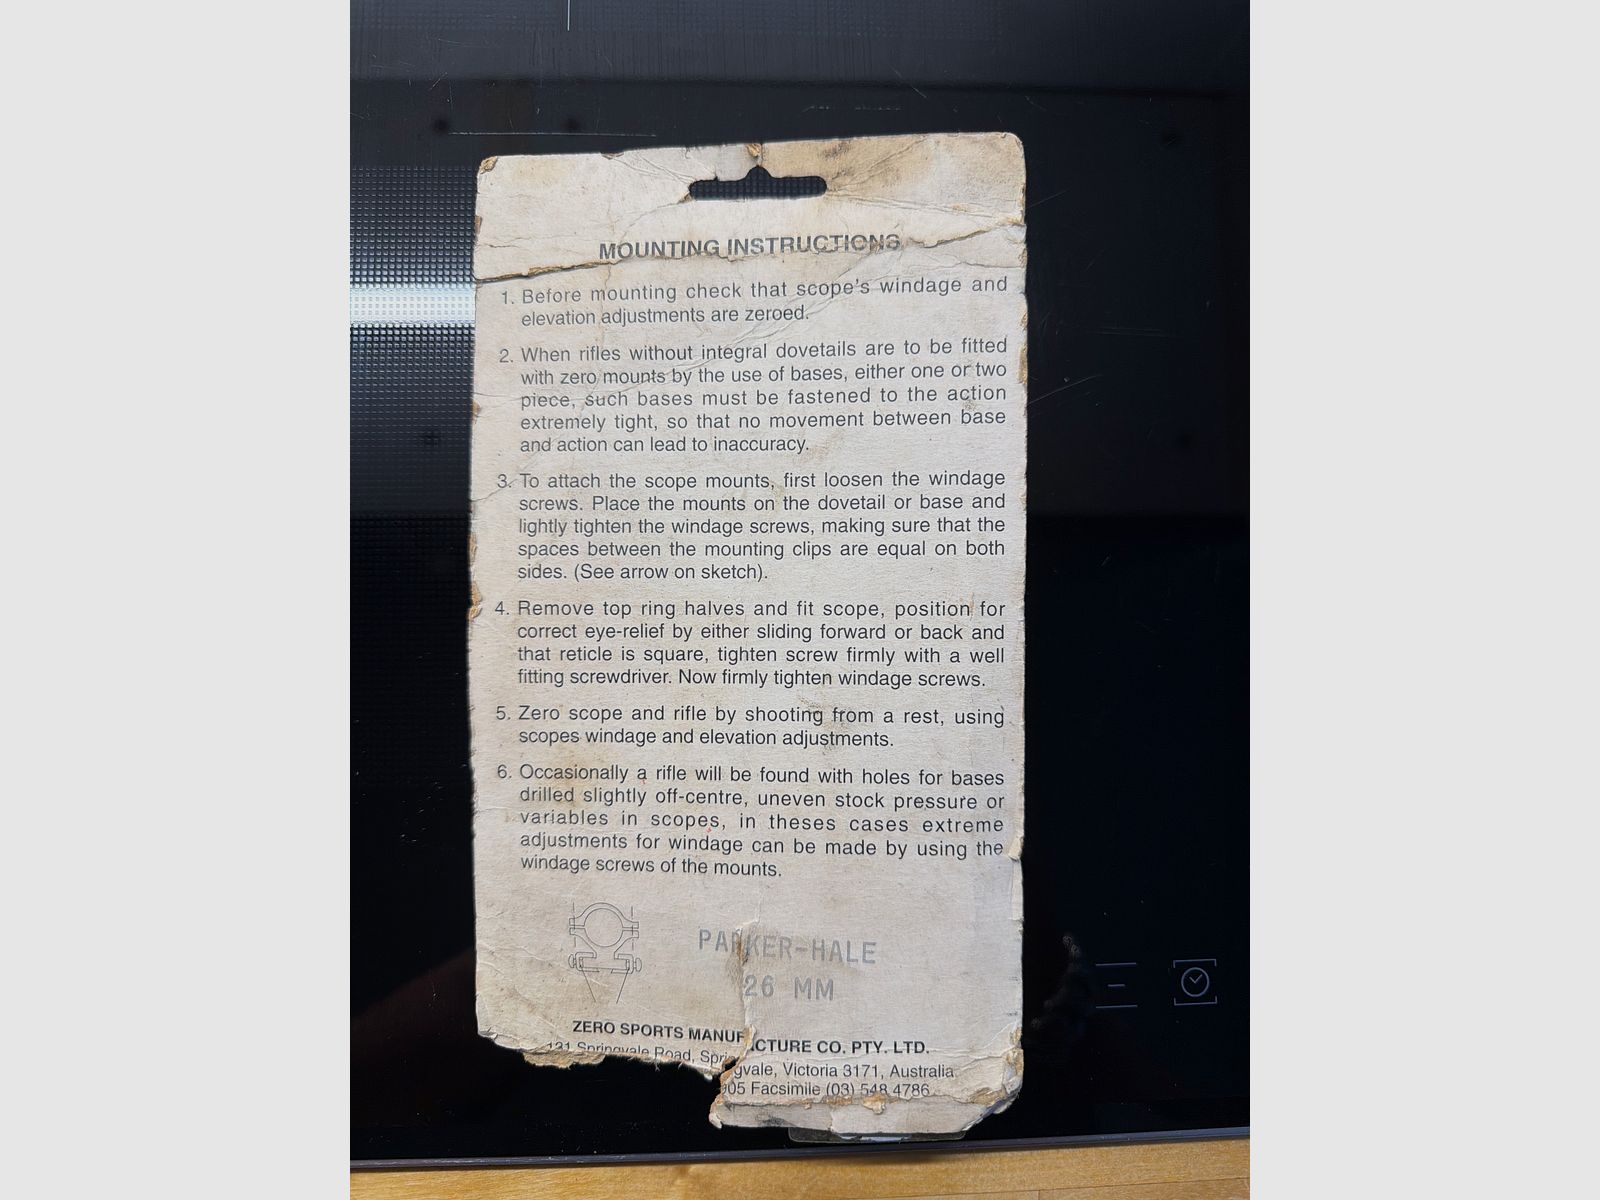 MOUNTING INSTRUCTIONS
1. Before mounting check that scope's windage and
elevation adjustments are zeroed.
2. When rifles without integral dovetails are to be fitted
with zero mounts by the use of bases, either one or two
piece, such bases must be fastened to the action
extremely tight, so that no movement between base
and action can lead to inaccuracy.
3. To attach the scope mounts, first loosen the windage
screws. Place the mounts on the dovetail or base and
lightly tighten the windage screws, making sure that the
spaces between the mounting clips are equal on both
sides. (See arrow on sketch).
4. Remove top ring halves and fit scope, position for
correct eye-relief by either sliding forward or back and
that reticle is square, tighten screw firmly with a well
fitting screwdriver. Now firmly tighten windage screws.
5. Zero scope and rifle by shooting from a rest, using
scopes windage and elevation adjustments.
6. Occasionally a rifle will be found with holes for bases
drilled slightly off-centre, uneven stock pressure or
variables in scopes, in theses cases extreme
adjustments for windage can be made by using the
windage screws of the mounts.
PARKER-HALE
26 MM
ZERO SPORTS MANUFACTURE CO. PTY. LTD.
131 Springvale Road, Springvale, Victoria 3171, Australia
05 Facsimile (03) 548 4786